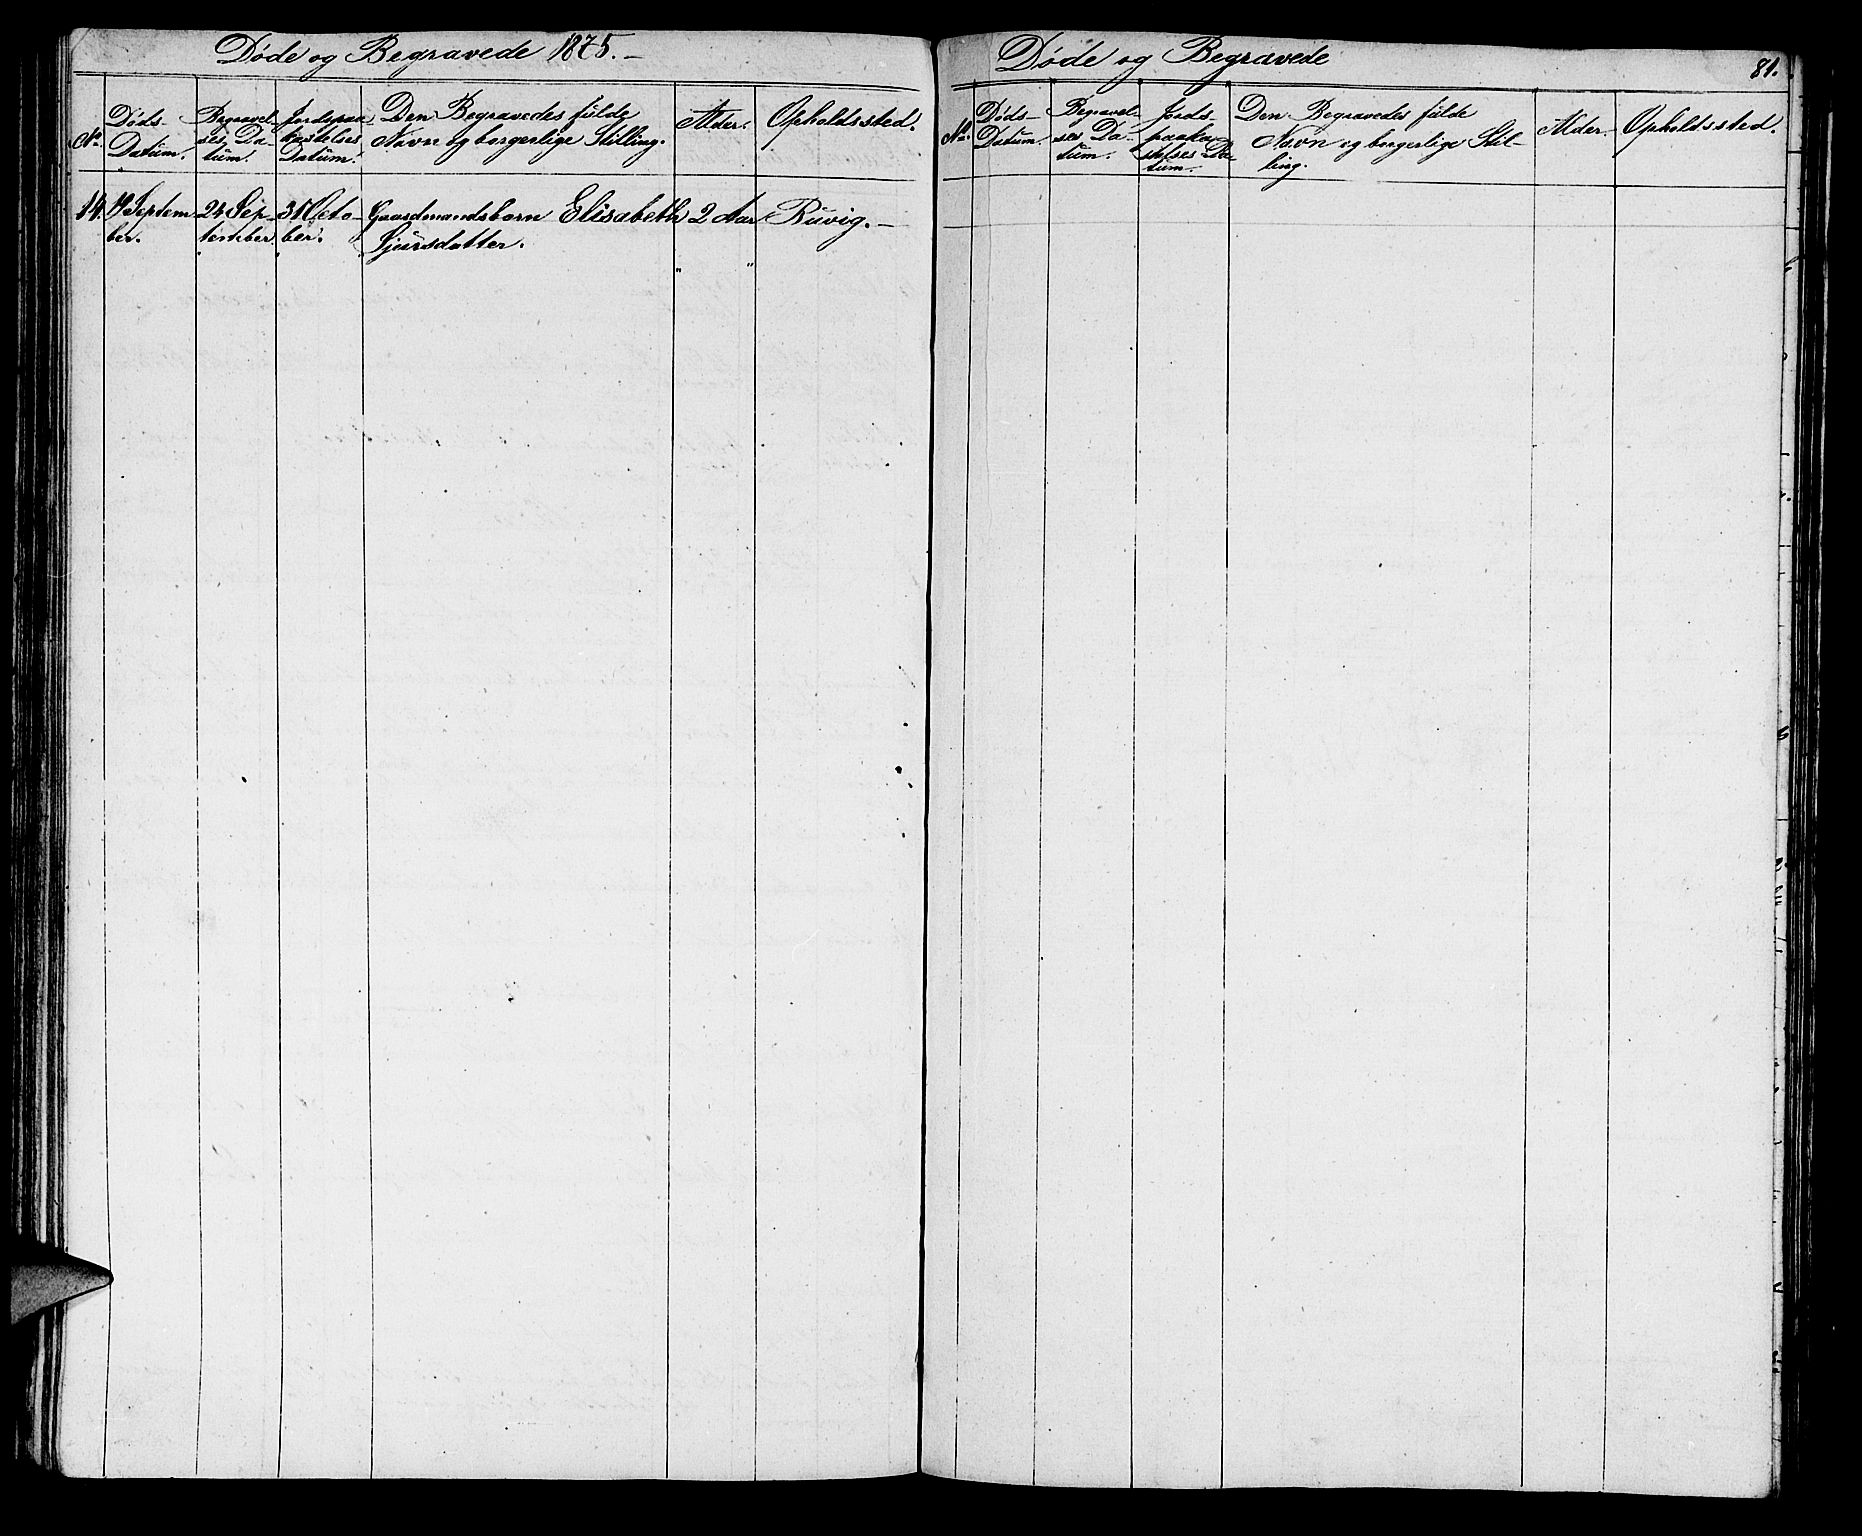 Døde og Begravede 1875.-
No. Døds Datum. Begravelses Datum. Jordspaakastelses Datum. Den Begravedes fulde Navn og borgerlige Stilling. Alder. Opholdssted.
14. 19 Septem 24 Sep 31 Octo Gaardmandsbarn Elisabeth 2 Aar Ruvig.-
ber. tember ber. Sjursdatter.
Døde og Begravede
81.
No. Døds Datum. Begravelses Datum. Jordspaakastelses Datum. Den Begravedes fulde Navn og borgerlige Stilling. Alder. Opholdssted.